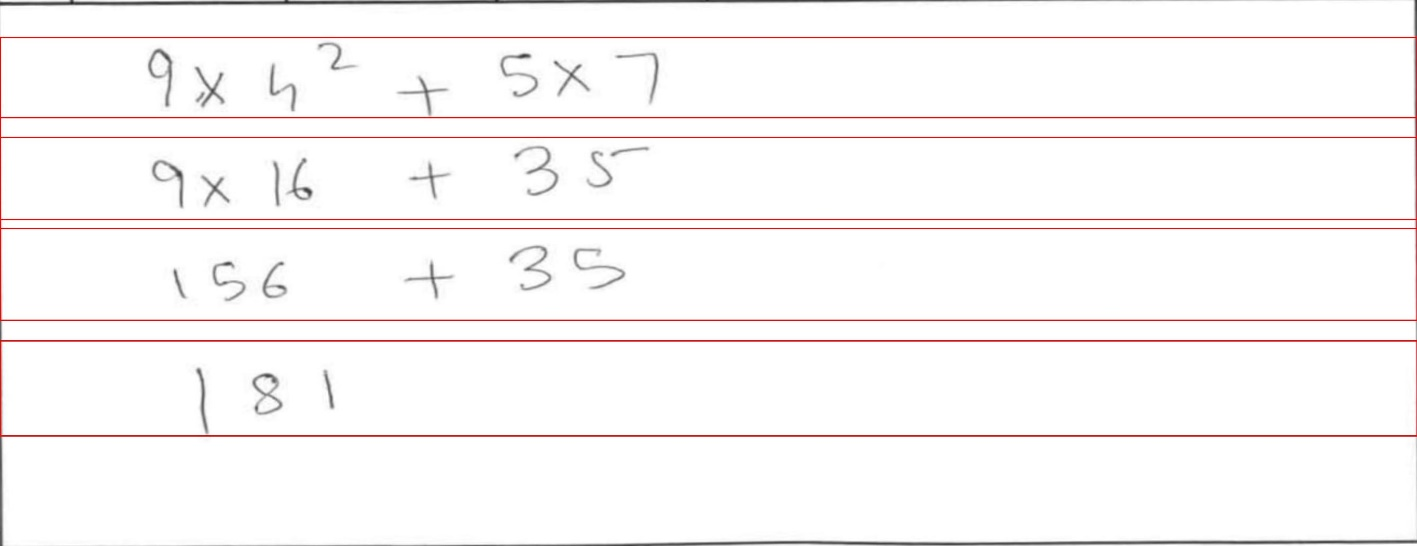 9 × 4² + 5 × 7
9 × 16 + 35
156 + 35
181